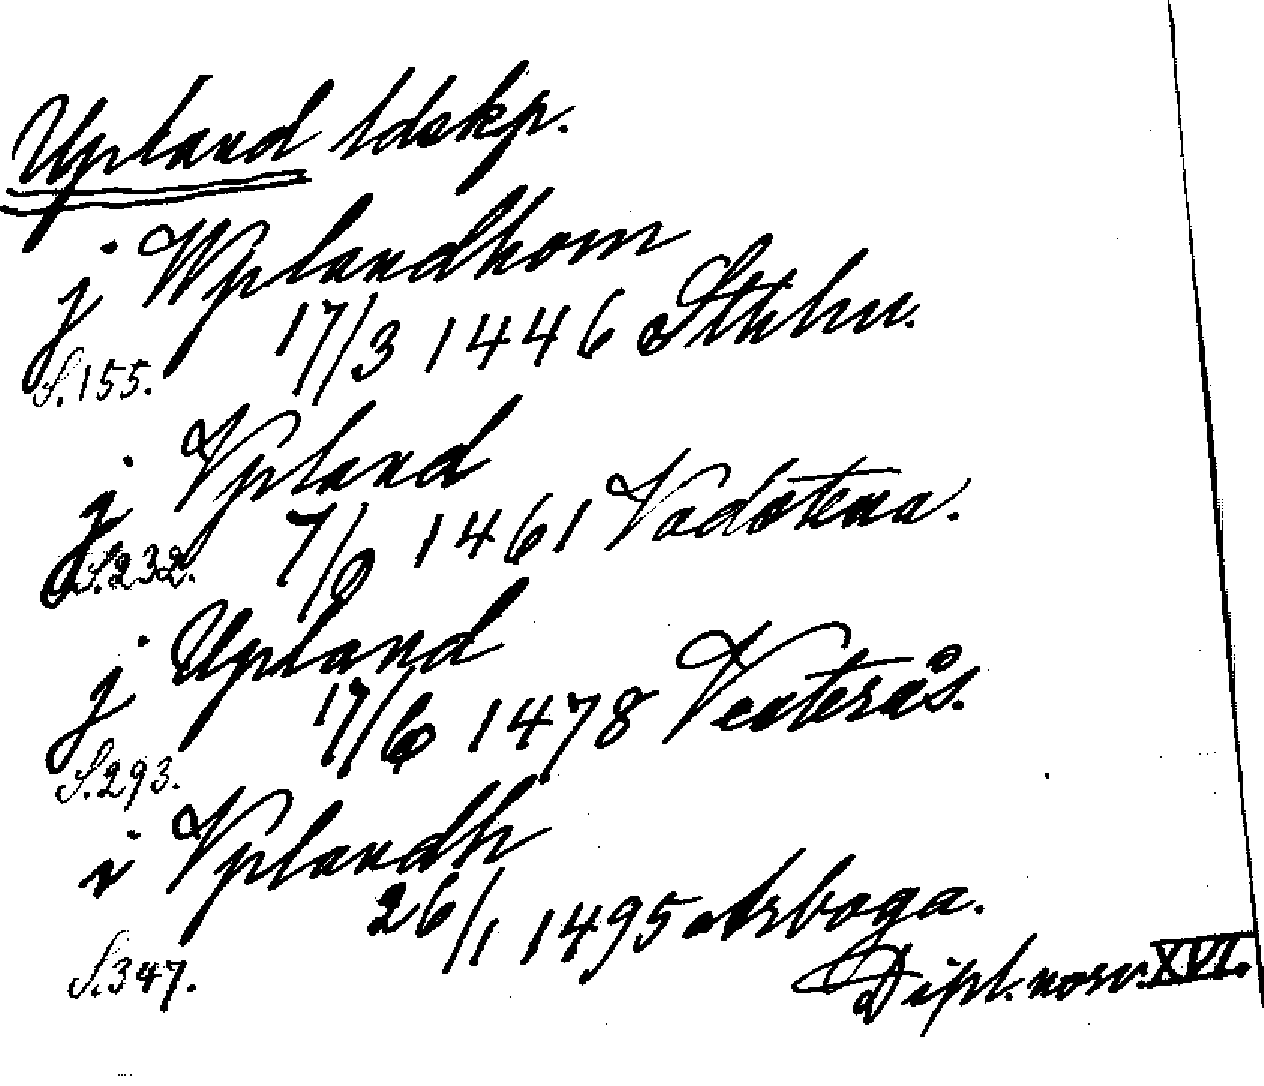 Upland ldskp.
j Wplandhom
17/3 1446 Sthlm.
S.155.
j Vpland
7/9 1461 Vadstena.
S.232.
j Upland
17/6 1478 Vesterås.
S.293.
i Vplandh
26/1 1495 Arboga.
S.347.
Dipl. norv. XVI.